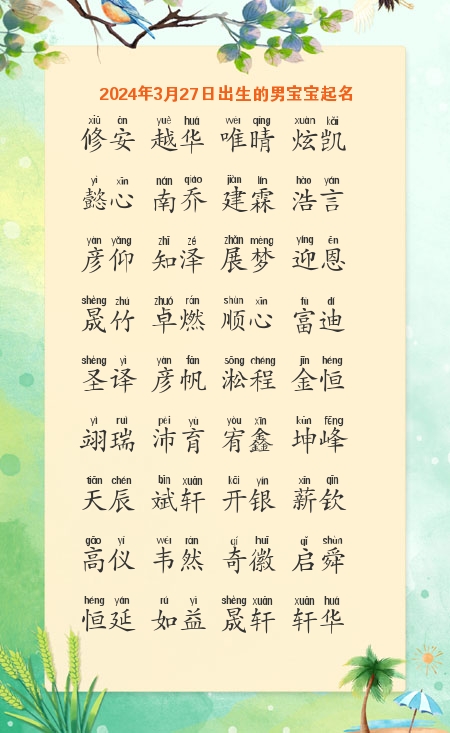 2024年3月27日出生的男宝宝起名
xiū ān yuè huá wéi qíng xuàn kǎi
修安 越华 唯晴 炫凯
yì xīn nán qiáo jiàn lín hào yán
懿心 南乔 建霖 浩言
yàn yǎng zhī zé zhǎn mèng yíng ēn
彦仰 知泽 展梦 迎恩
shèng zhú zhuó rán shùn xīn fù dí
晟竹 卓燃 顺心 富迪
shèng yì yàn fān sōng chéng jīn héng
圣译 彦帆 淞程 金恒
yì ruì pèi yù yòu xīn kūn fēng
翊瑞 沛育 宥鑫 坤峰
tiān chén bīn xuān kāi yín xīn qīn
天辰 斌轩 开银 薪钦
gāo yí wéi rán qí huī qǐ shùn
高仪 韦然 奇徽 启舜
héng yán rú yì shèng xuān xuān huá
恒延 如益 晟轩 轩华